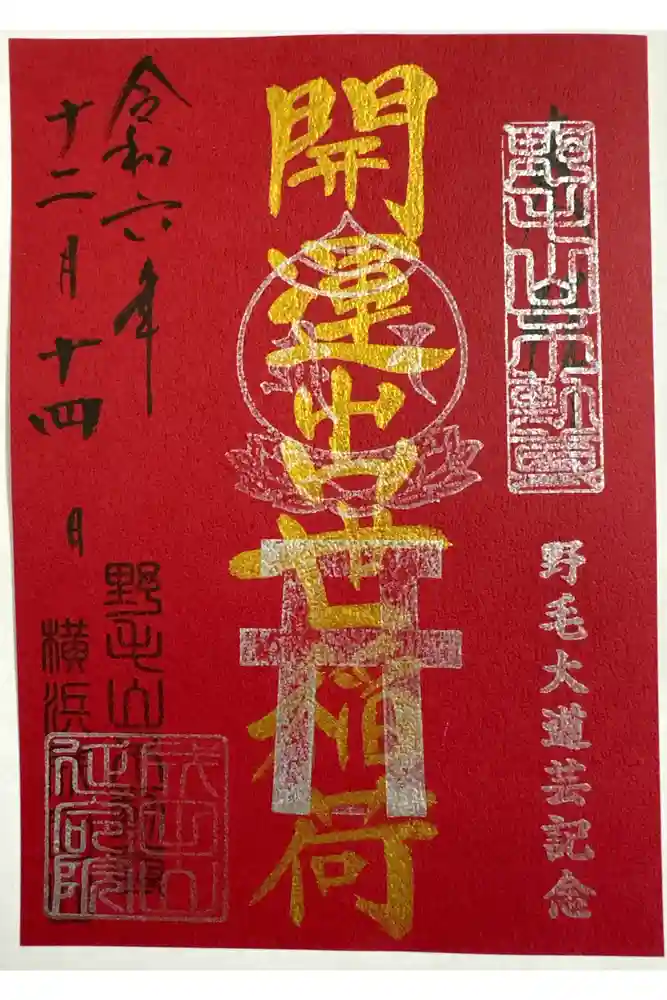 野毛山不動尊
野毛大道芸記念
開運出世稲荷
令和六年
十二月十四日
野毛山
横浜
成田山
延命院